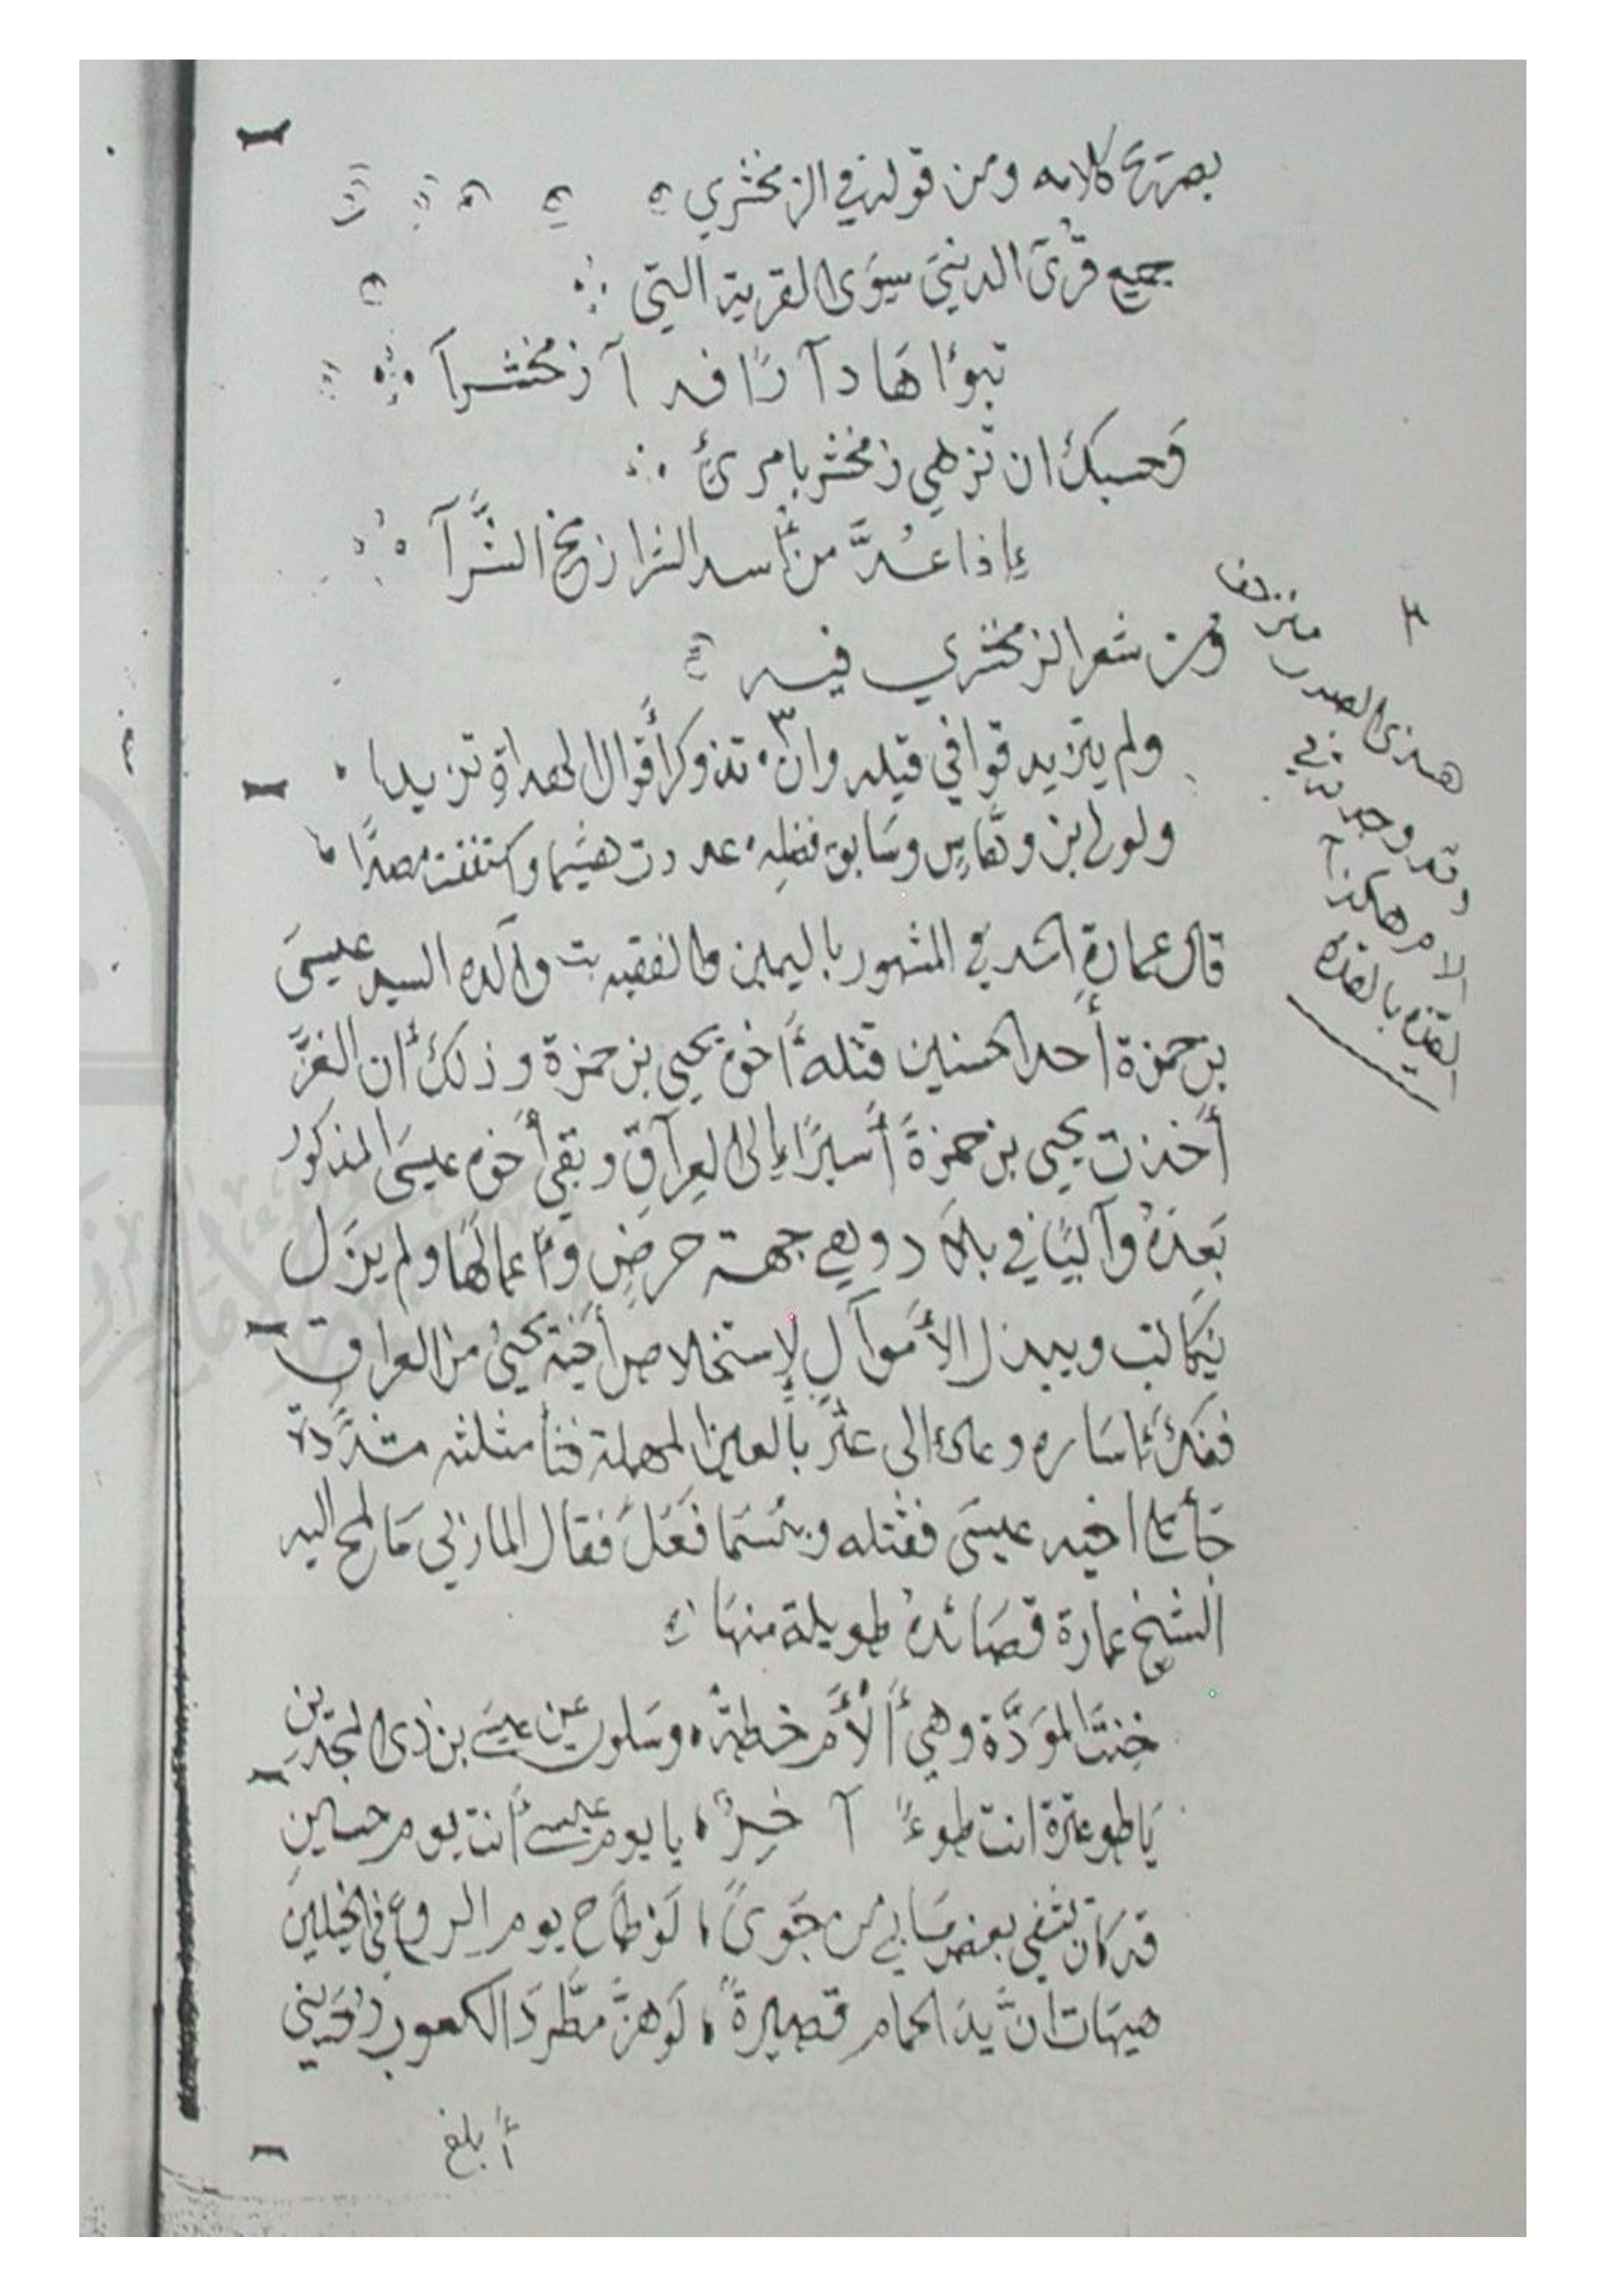 بصريح كلامه ومن قوله في الزمخشري
جميع قرى الدنيى سوى القرية التي
تبوٴاها دآرًا فدآ زمخشرآ
وحسبك ان تزهي زمخشر بامرئ
إذا عُدَّ من أسد الشرا زمخ الشَّرآ
ومن شعر الزمخشري فيه
ولم يتزيد قوافي قيله وان تذوكر أقوال الهداة تزيدا
ولولا ابن وهاس وسابق فضله عددت هشيما وكتففت مصدا
قال عمارة المشهور باليمين والفقيه والده السيد عيسى
بن حمزة أحد الحسنين قتله أخوه يحيى بن حمزة وذلك أن الغزّ
أخذت يحيى بن حمزة أسيرًا إلى العرآق وبقي أخوه عيسى المذكور
بعده وآليًا في بلاد وهي جهة حرض وأعمالها ولم يزل
يكاتب ويبذل الأموآل لإستخلاص أخيه يحيى من العراق
ففكّ أساره وعاد الى عثّر بالعين المهملة فثا مثلثه مشدّدة
فقتله وبئسما فعل فقال
الشيخ عمارة قصائده طويلة منها
خنت المودّة وهي ألأم خطة وسلوت عن عيسى بن ذي المجدين
يا طو عثرة انت طوءً آخرٌ يا يوم عيسى أنت يوم حسين
قد كان يشفي بعض ما بي من جوىً لو طاح يوم الروع في الخيلين
هيهات انّ يد الحمام قصيرةً لو هزّ مطّرد الكعوب رديني
أبلغ
هذى الصدر
وقد وجدته في
الام هكذا